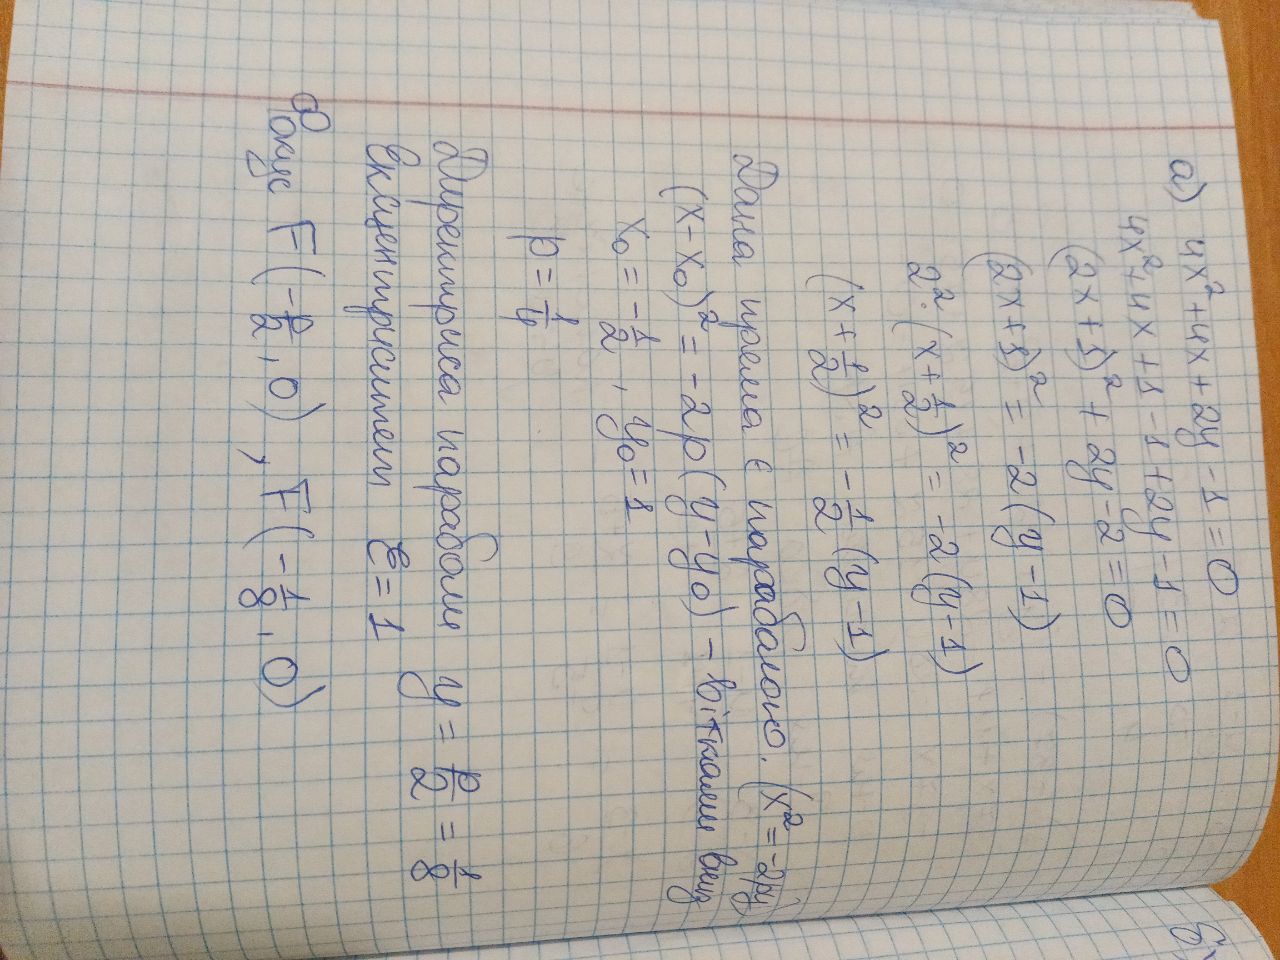 а) 4x² + 4x + 2y - 1 = 0
4x² + 4x + 1 - 1 + 2y - 1 = 0
(2x + 1)² + 2y - 2 = 0
(2x + 1)² = -2 (y - 1)
2² · (x + 1/2)² = -2 (y - 1)
(x + 1/2)² = - 1/2 (y - 1)
Дана пряма є параболою. (x² = -2py)
(x - x₀)² = -2p (y - y₀) - вітками вниз
x₀ = - 1/2 , y₀ = 1
p = 1/4
Директриса параболи y = p/2 = 1/8
Ексцентриситет ε = 1
Фокус F (- p/2 , 0) , F (- 1/8 , 0)